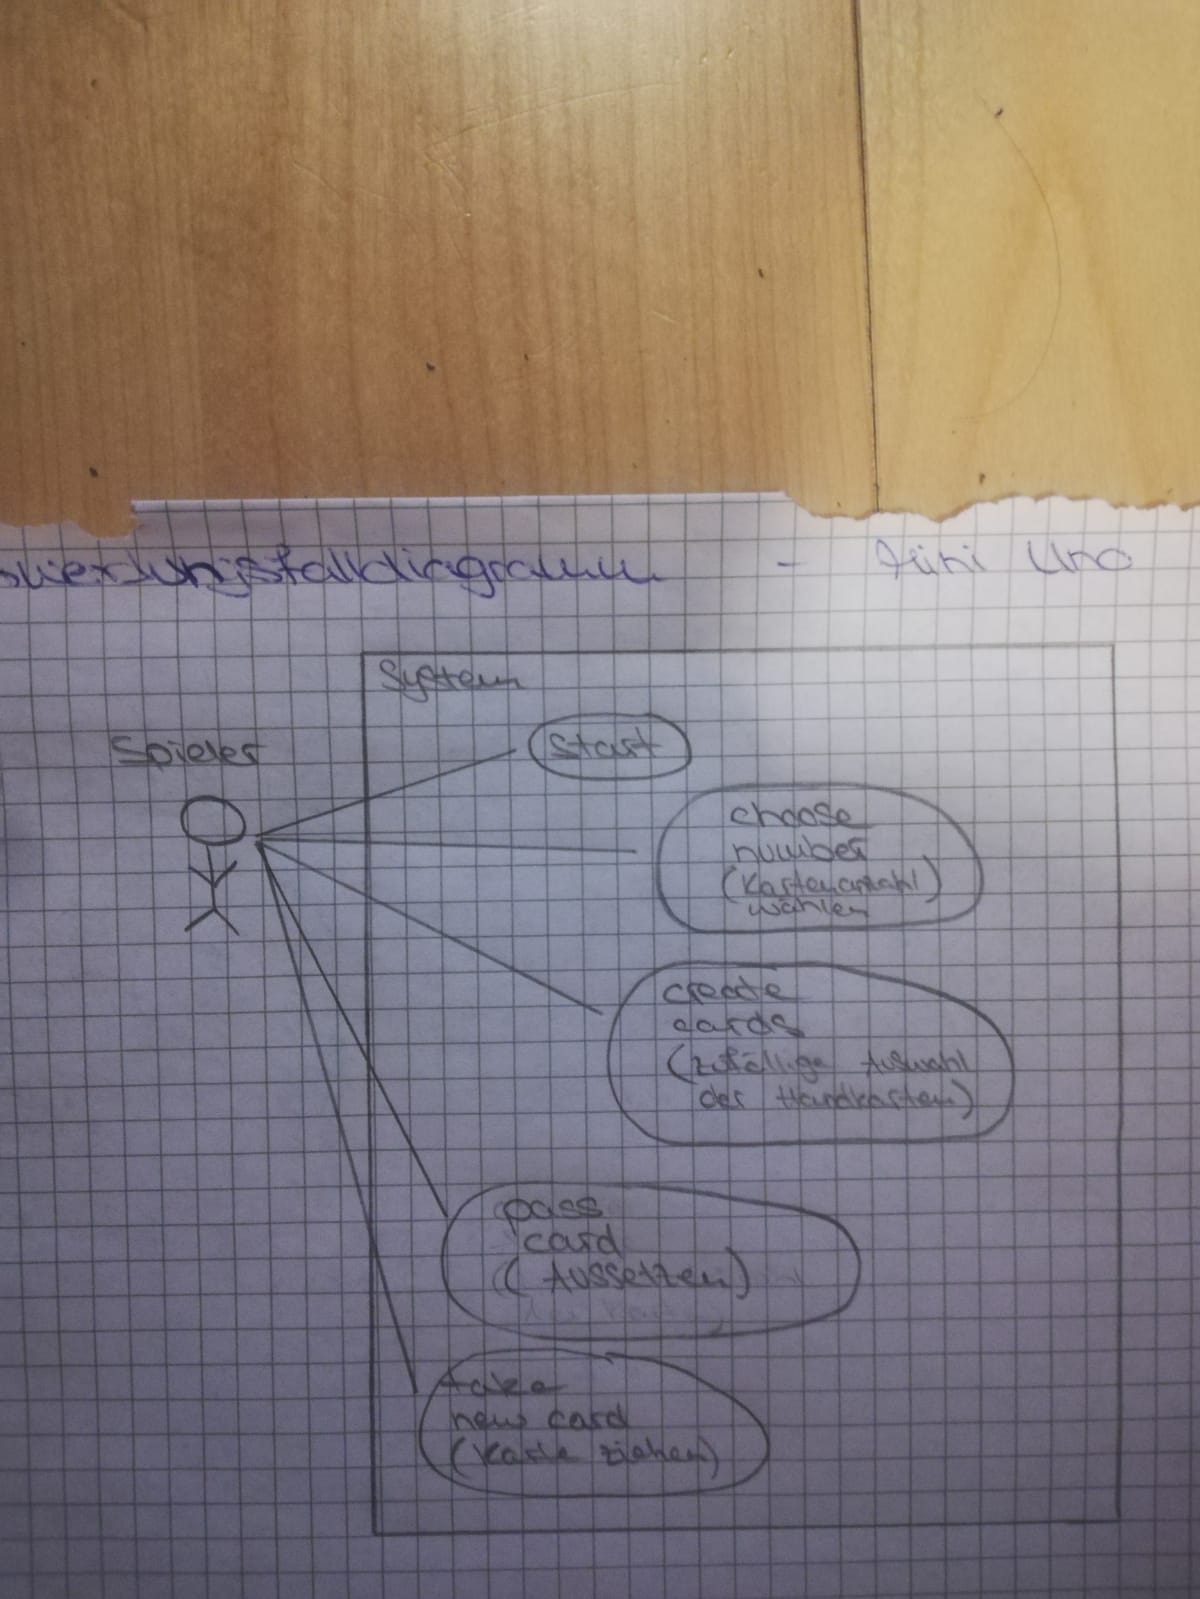 wendungsfalldiagramm - Mini Uno
System
Spieler
Start
choose
number
(Kartenanzahl)
wählen
create
cards
(zufällige Auswahl
der Handkarten)
pass
card
(Aussetzen)
take
new card
(Karte ziehen)